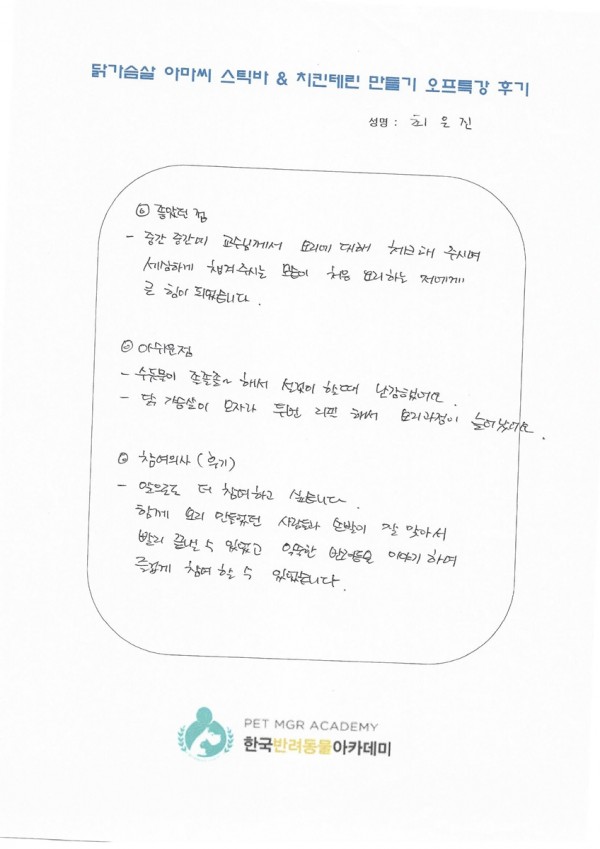 닭가슴살 아마씨 스틱바 & 치킨테린 만들기 오프특강 후기
성명 : 최은진
◎ 좋았던 점
- 중간 중간에 교수님께서 요리에 대해 체크해 주시며
세심하게 챙겨주시는 모습이 처음 요리하는 저에게
큰 힘이 되었습니다.
◎ 아쉬운점
- 수돗물이 졸졸졸~ 해서 설겆이 할때 난감했어요.
- 닭 가슴살이 모자라 두번 리필 해서 요리과정이 늘어났어요.
◎ 참여의사 (후기)
- 앞으로도 더 참여하고 싶습니다.
함께 요리 만들었던 사람들과 손발이 잘 맞아서
빨리 끝낼 수 있었고 이야기하며
즐겁게 참여 할 수 있었습니다.
PET MGR ACADEMY
한국반려동물아카데미